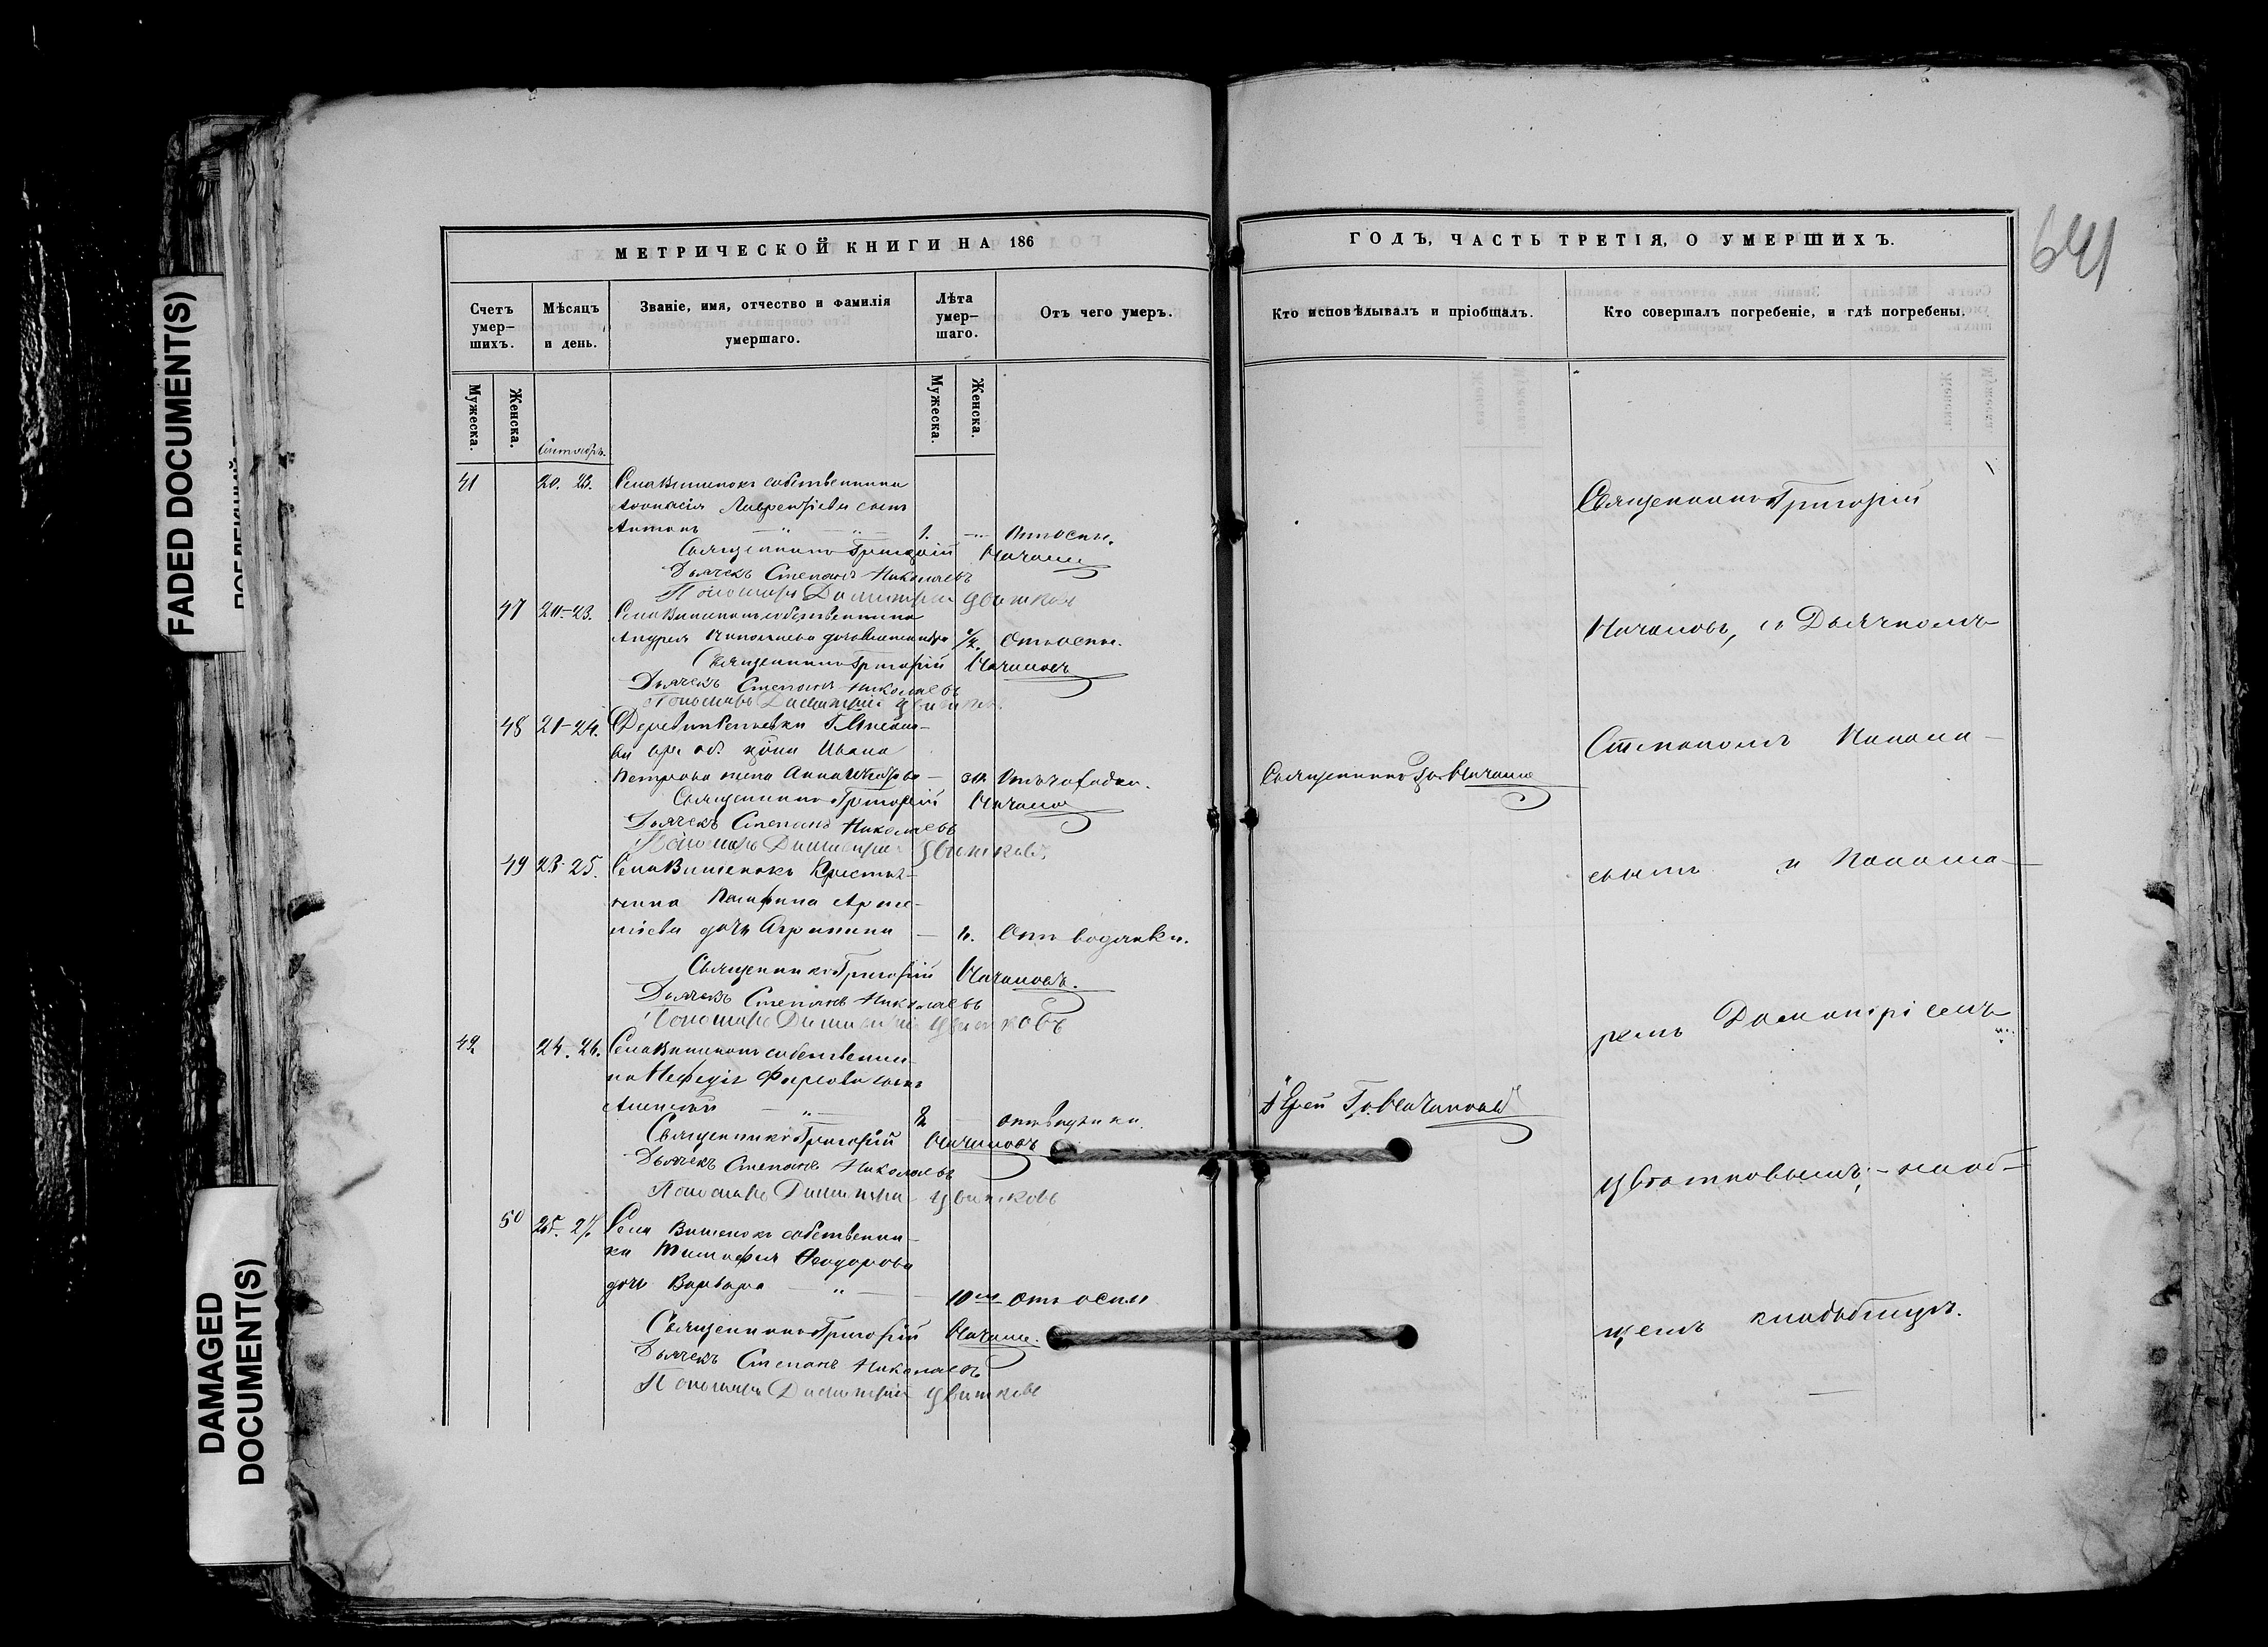 FADED DOCUMENT(S)
DAMAGED
DOCUMENT(S)
641
МЕТРИЧЕСКОЙ КНИГИ НА 186
Счетъ умер–шихъ.
Мѣсяцъ и день.
Званіе, имя, отчество и фамилія умершаго.
Лѣта умер–шаго.
Отъ чего умеръ.
Мужеска.
Женска.
Мужеска.
Женска.
Сентябрь.
41 20. 23. Села Вишенокъ собственника
Аѳонасія Лаврентіева сынъ
Антонъ 1. Отъ оспы.
Священникъ Григорій Начановъ
Дьячекъ Степанъ Николаевъ
Пономарь Димитрій Цвѣтковъ
47 20–23. Села Вишенокъ собственника
Андрея дочь Александра 1/2. Отъ оспы.
Священникъ Григорій Начановъ
Дьячекъ Степанъ Николаевъ
Пономарь Димитрій Цвѣтковъ
48 21–24. Деревни
Ивана
Петрова жена Анна 30.
Священникъ Григорій Начановъ
Дьячекъ Степанъ Николаевъ
Пономарь Димитрій Цвѣтковъ
49 23–25. Села Вишенокъ Кресть–
янина
дочь Агрипина Отъ водянки.
Священникъ Григорій Начановъ.
Дьячекъ Степанъ Николаевъ
Пономарь Димитрій Цвѣтковъ
42 24. 26. Села Вишенокъ собственни–
ка Мефодія сынъ
Алексѣй 2
Священникъ Григорій Начановъ
Дьячекъ Степанъ Николаевъ
Пономарь Димитрій Цвѣтковъ
50 25. 27. Села Вишенокъ собственни–
ка Тимофея Ѳеодорова
дочь Варвара Отъ оспы
Священникъ Григорій Начановъ.
Дьячекъ Степанъ Николаевъ
Пономарь Димитрій Цвѣтковъ
ГОДЪ, ЧАСТЬ ТРЕТІЯ, О УМЕРШИХЪ.
Кто исповѣдывалъ и пріобщалъ.
Кто совершалъ погребеніе, и гдѣ погребены.
Священникъ Гр. Начановъ
Іерей Гр. Начановъ
Священникъ Григорій
Начановъ, съ Дьячкомъ
Степаномъ Никола–
евымъ и Понома–
ремъ Димитріемъ
Цвѣтковымъ; – на об–
щемъ кладбищѣ.